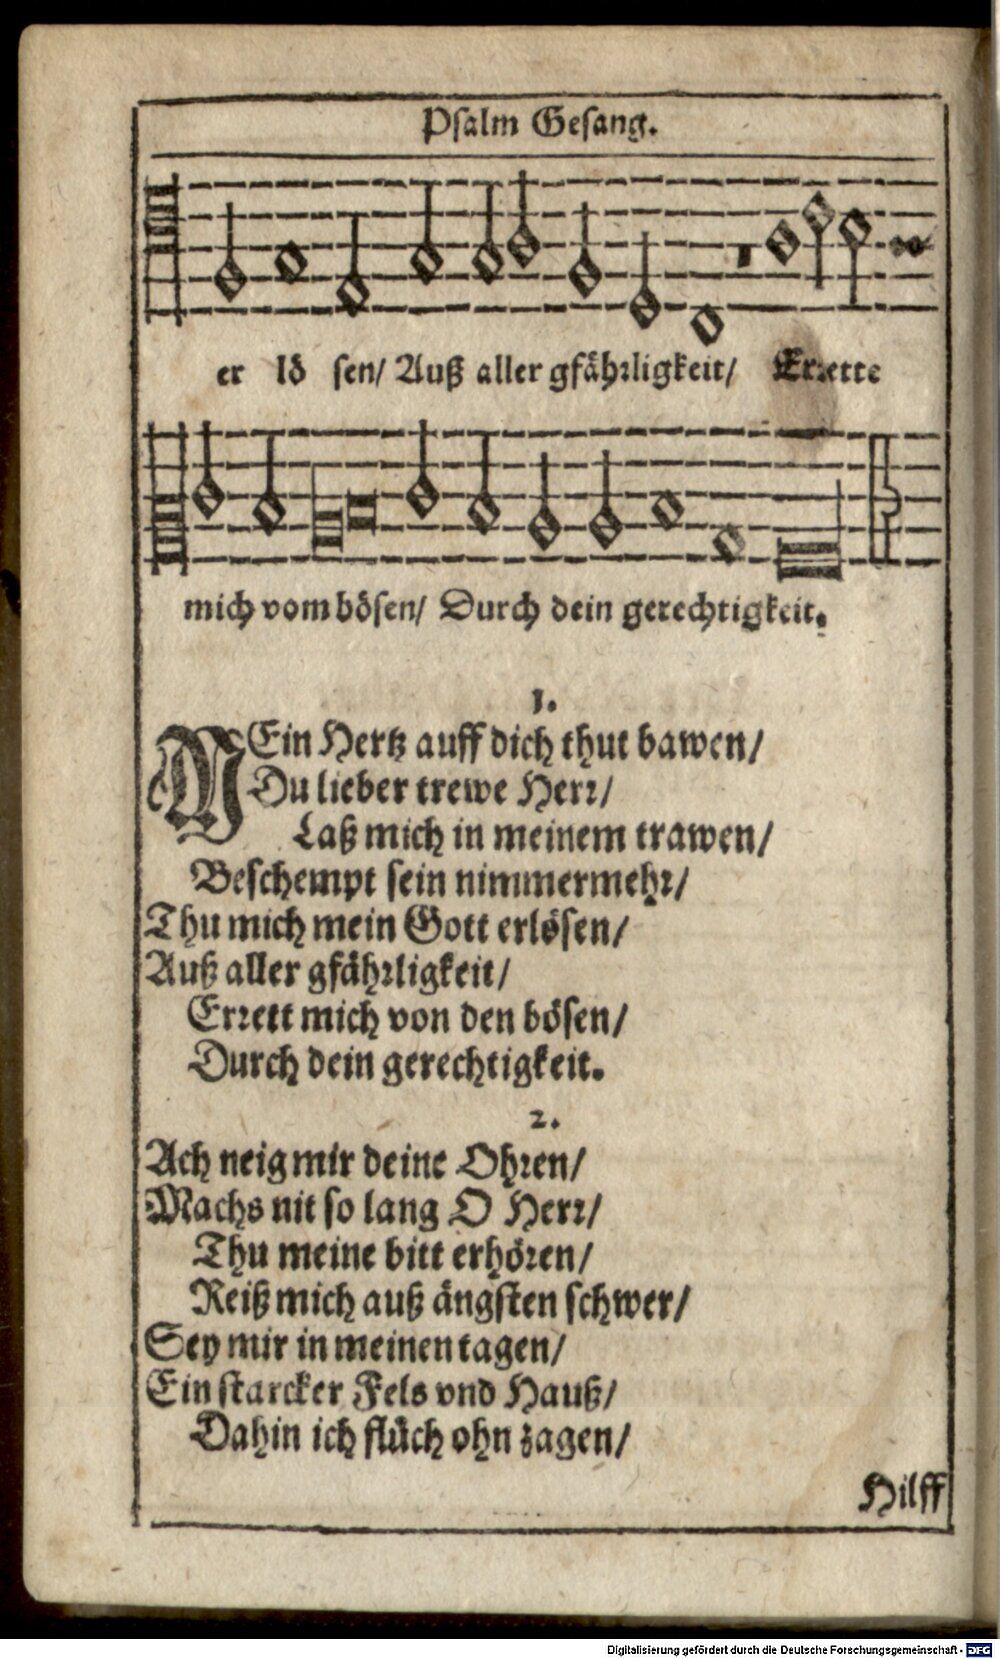 Psalm Gesang.
er lö sen/ Auß aller gfährligkeit/ Errette
mich vom bösen/ Durch dein gerechtigkeit.
1.
MEin Hertz auff dich thut bawen/
Du lieber trewe Herr/
Laß mich in meinem trawen/
Beschempt sein nimmermehr/
Thu mich mein Gott erlösen/
Auß aller gfährligkeit/
Errett mich von den bösen/
Durch dein gerechtigkeit.
2.
Ach neig mir deine Ohren/
Machs nit so lang O Herr/
Thu meine bitt erhören/
Reiß mich auß ängsten schwer/
Sey mir in meinen tagen/
Ein starcker Fels vnd Hauß/
Dahin ich flüch ohn zagen/
Hilff
Digitalisierung gefördert durch die Deutsche Forschungsgemeinschaft - DFG